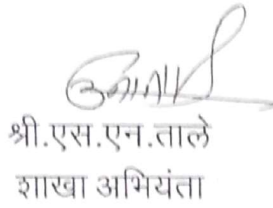 श्री.एस.एन.ताले
शाखा अभियंता